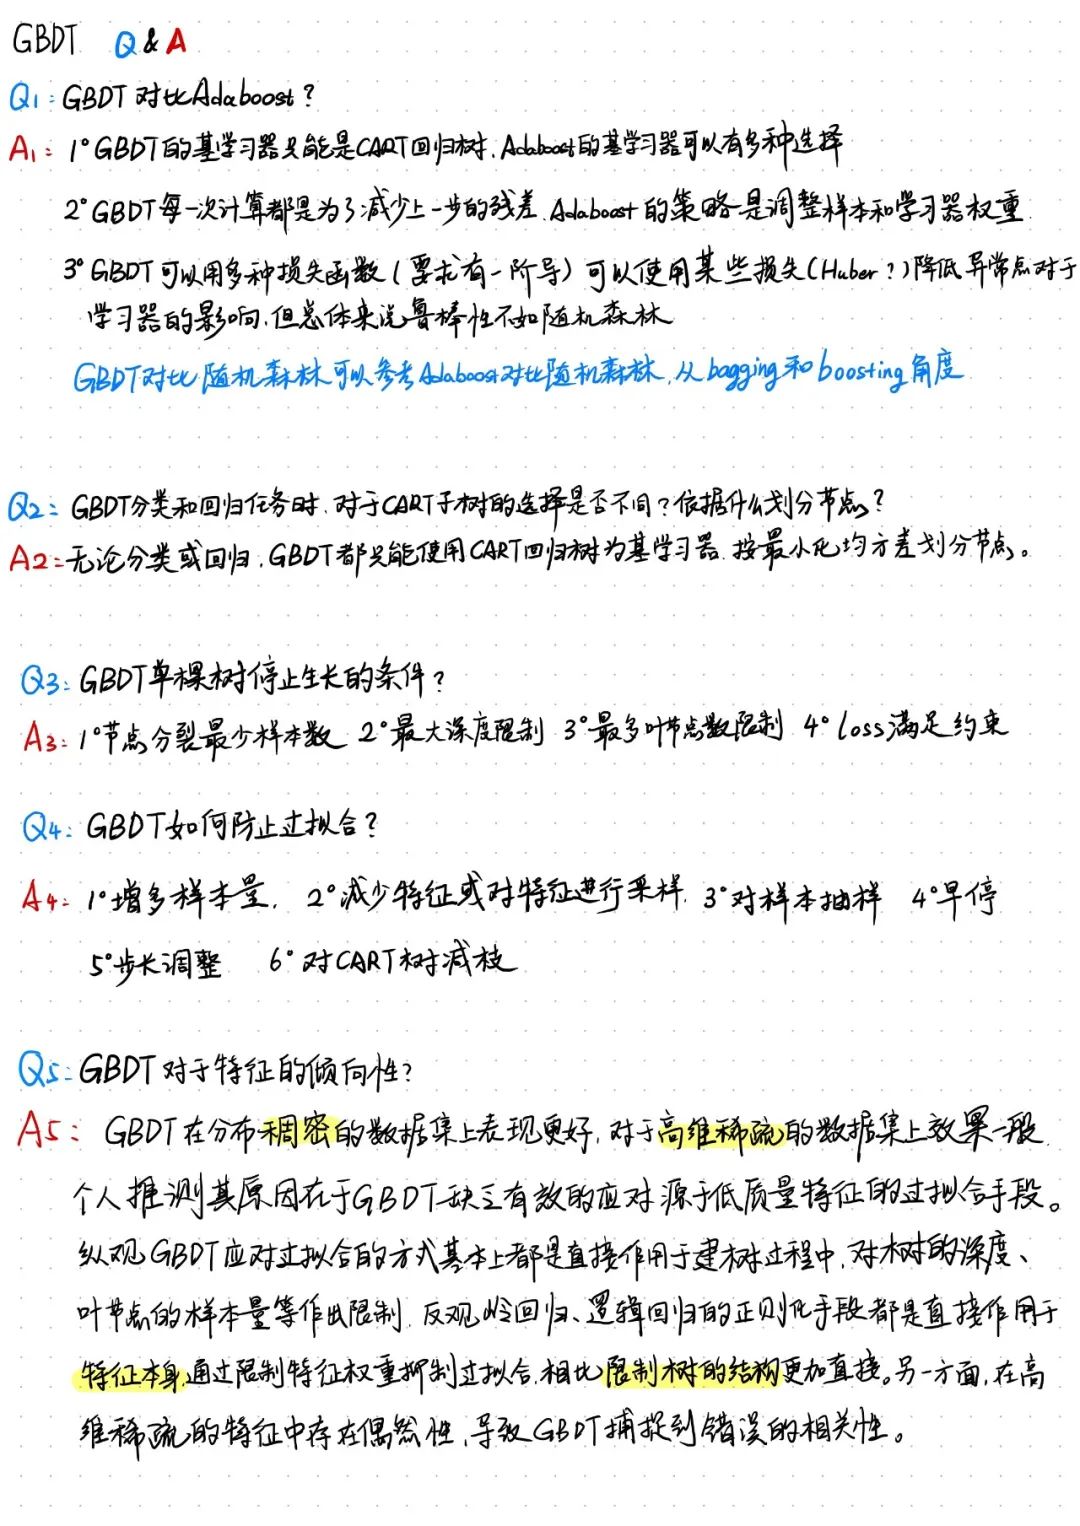 GBDT Q & A
Q1: GBDT对比Adaboost?
A1: 1° GBDT的基学习器只能是CART回归树, Adaboost的基学习器可以有多种选择
2° GBDT每一次计算都是为了减少上一步的残差, Adaboost的策略是调整样本和学习器权重
3° GBDT可以用多种损失函数(要求有一阶导)可以使用某些损失(Huber?)降低异常点对于
学习器的影响,但总体来说鲁棒性不如随机森林
GBDT对比随机森林可以参考Adaboost对比随机森林,从bagging和boosting角度
Q2: GBDT分类和回归任务时,对于CART子树的选择是否不同?依据什么划分节点?
A2: 无论分类或回归,GBDT都只能使用CART回归树为基学习器,按最小化均方差划分节点。
Q3: GBDT单棵树停止生长的条件?
A3: 1°节点分裂最少样本数 2°最大深度限制 3°最多叶节点数限制 4° loss满足约束
Q4: GBDT如何防止过拟合?
A4: 1°增多样本量, 2°减少特征或对特征进行采样, 3°对样本抽样 4°早停
5°步长调整 6°对CART树减枝
Q5: GBDT对于特征的倾向性?
A5: GBDT在分布稠密的数据集上表现更好,对于高维稀疏的数据集上效果一般,
个人推测其原因在于GBDT缺乏有效的应对源于低质量特征的过拟合手段。
纵观GBDT应对过拟合的方式基本上都是直接作用于建树过程中,对树的深度、
叶节点的样本量等作出限制,反观岭回归、逻辑回归的正则化手段都是直接作用于
特征本身,通过限制特征权重抑制过拟合,相比限制树的结构更加直接。另一方面,在高
维稀疏的特征中存在偶然性,导致GBDT捕捉到错误的相关性。